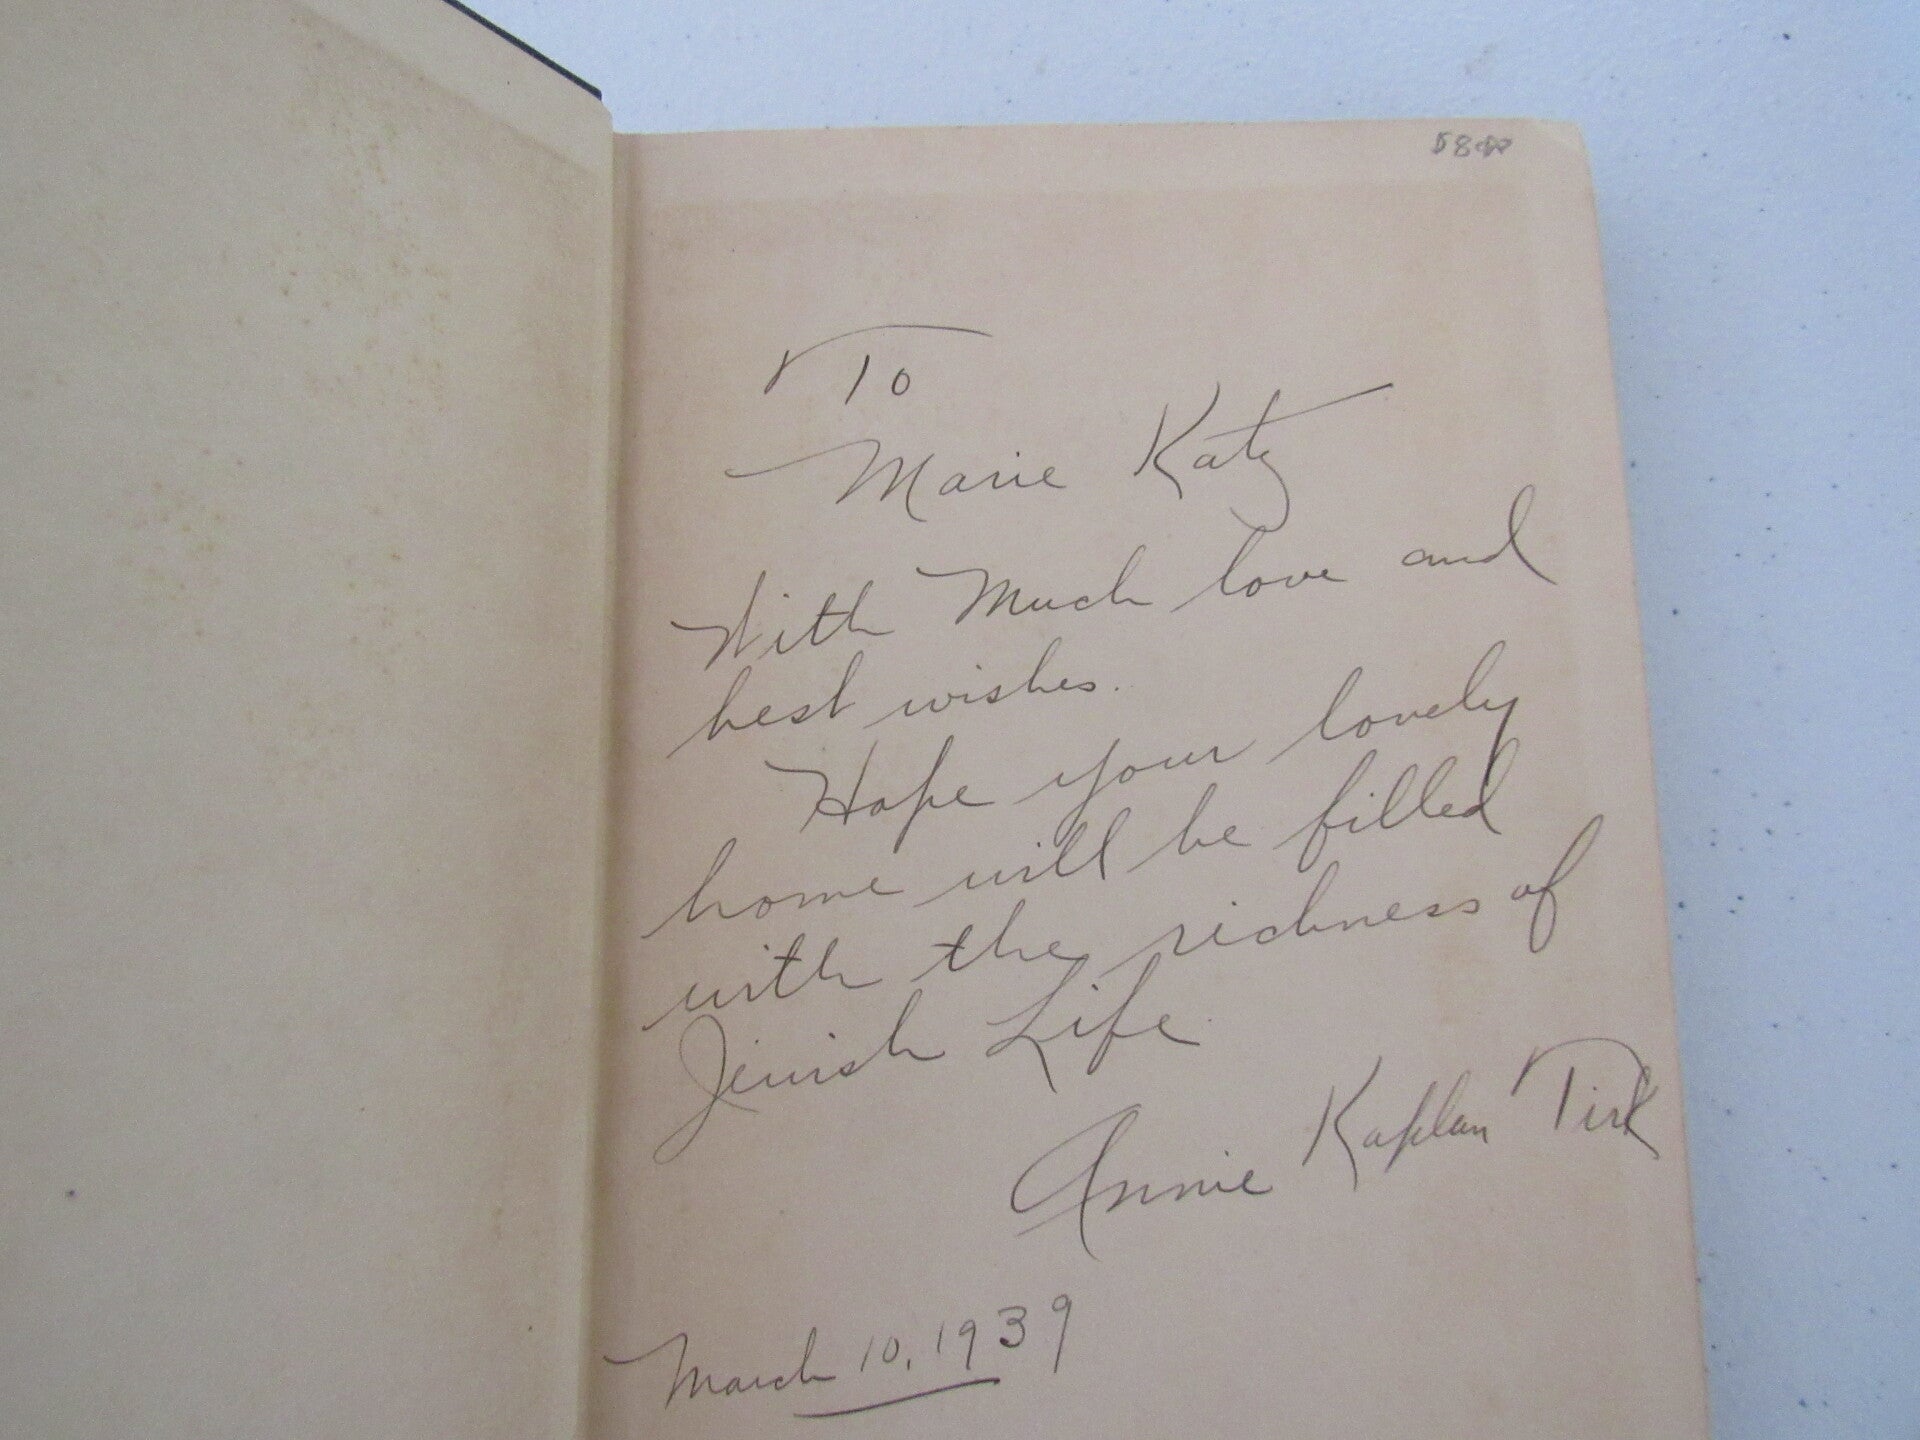 To
Marie Katz
With Much love and
best wishes.
Hope your lovely
home will be filled
with the richness of
Jewish Life
Annie Kaplan Tirk
March 10, 1939